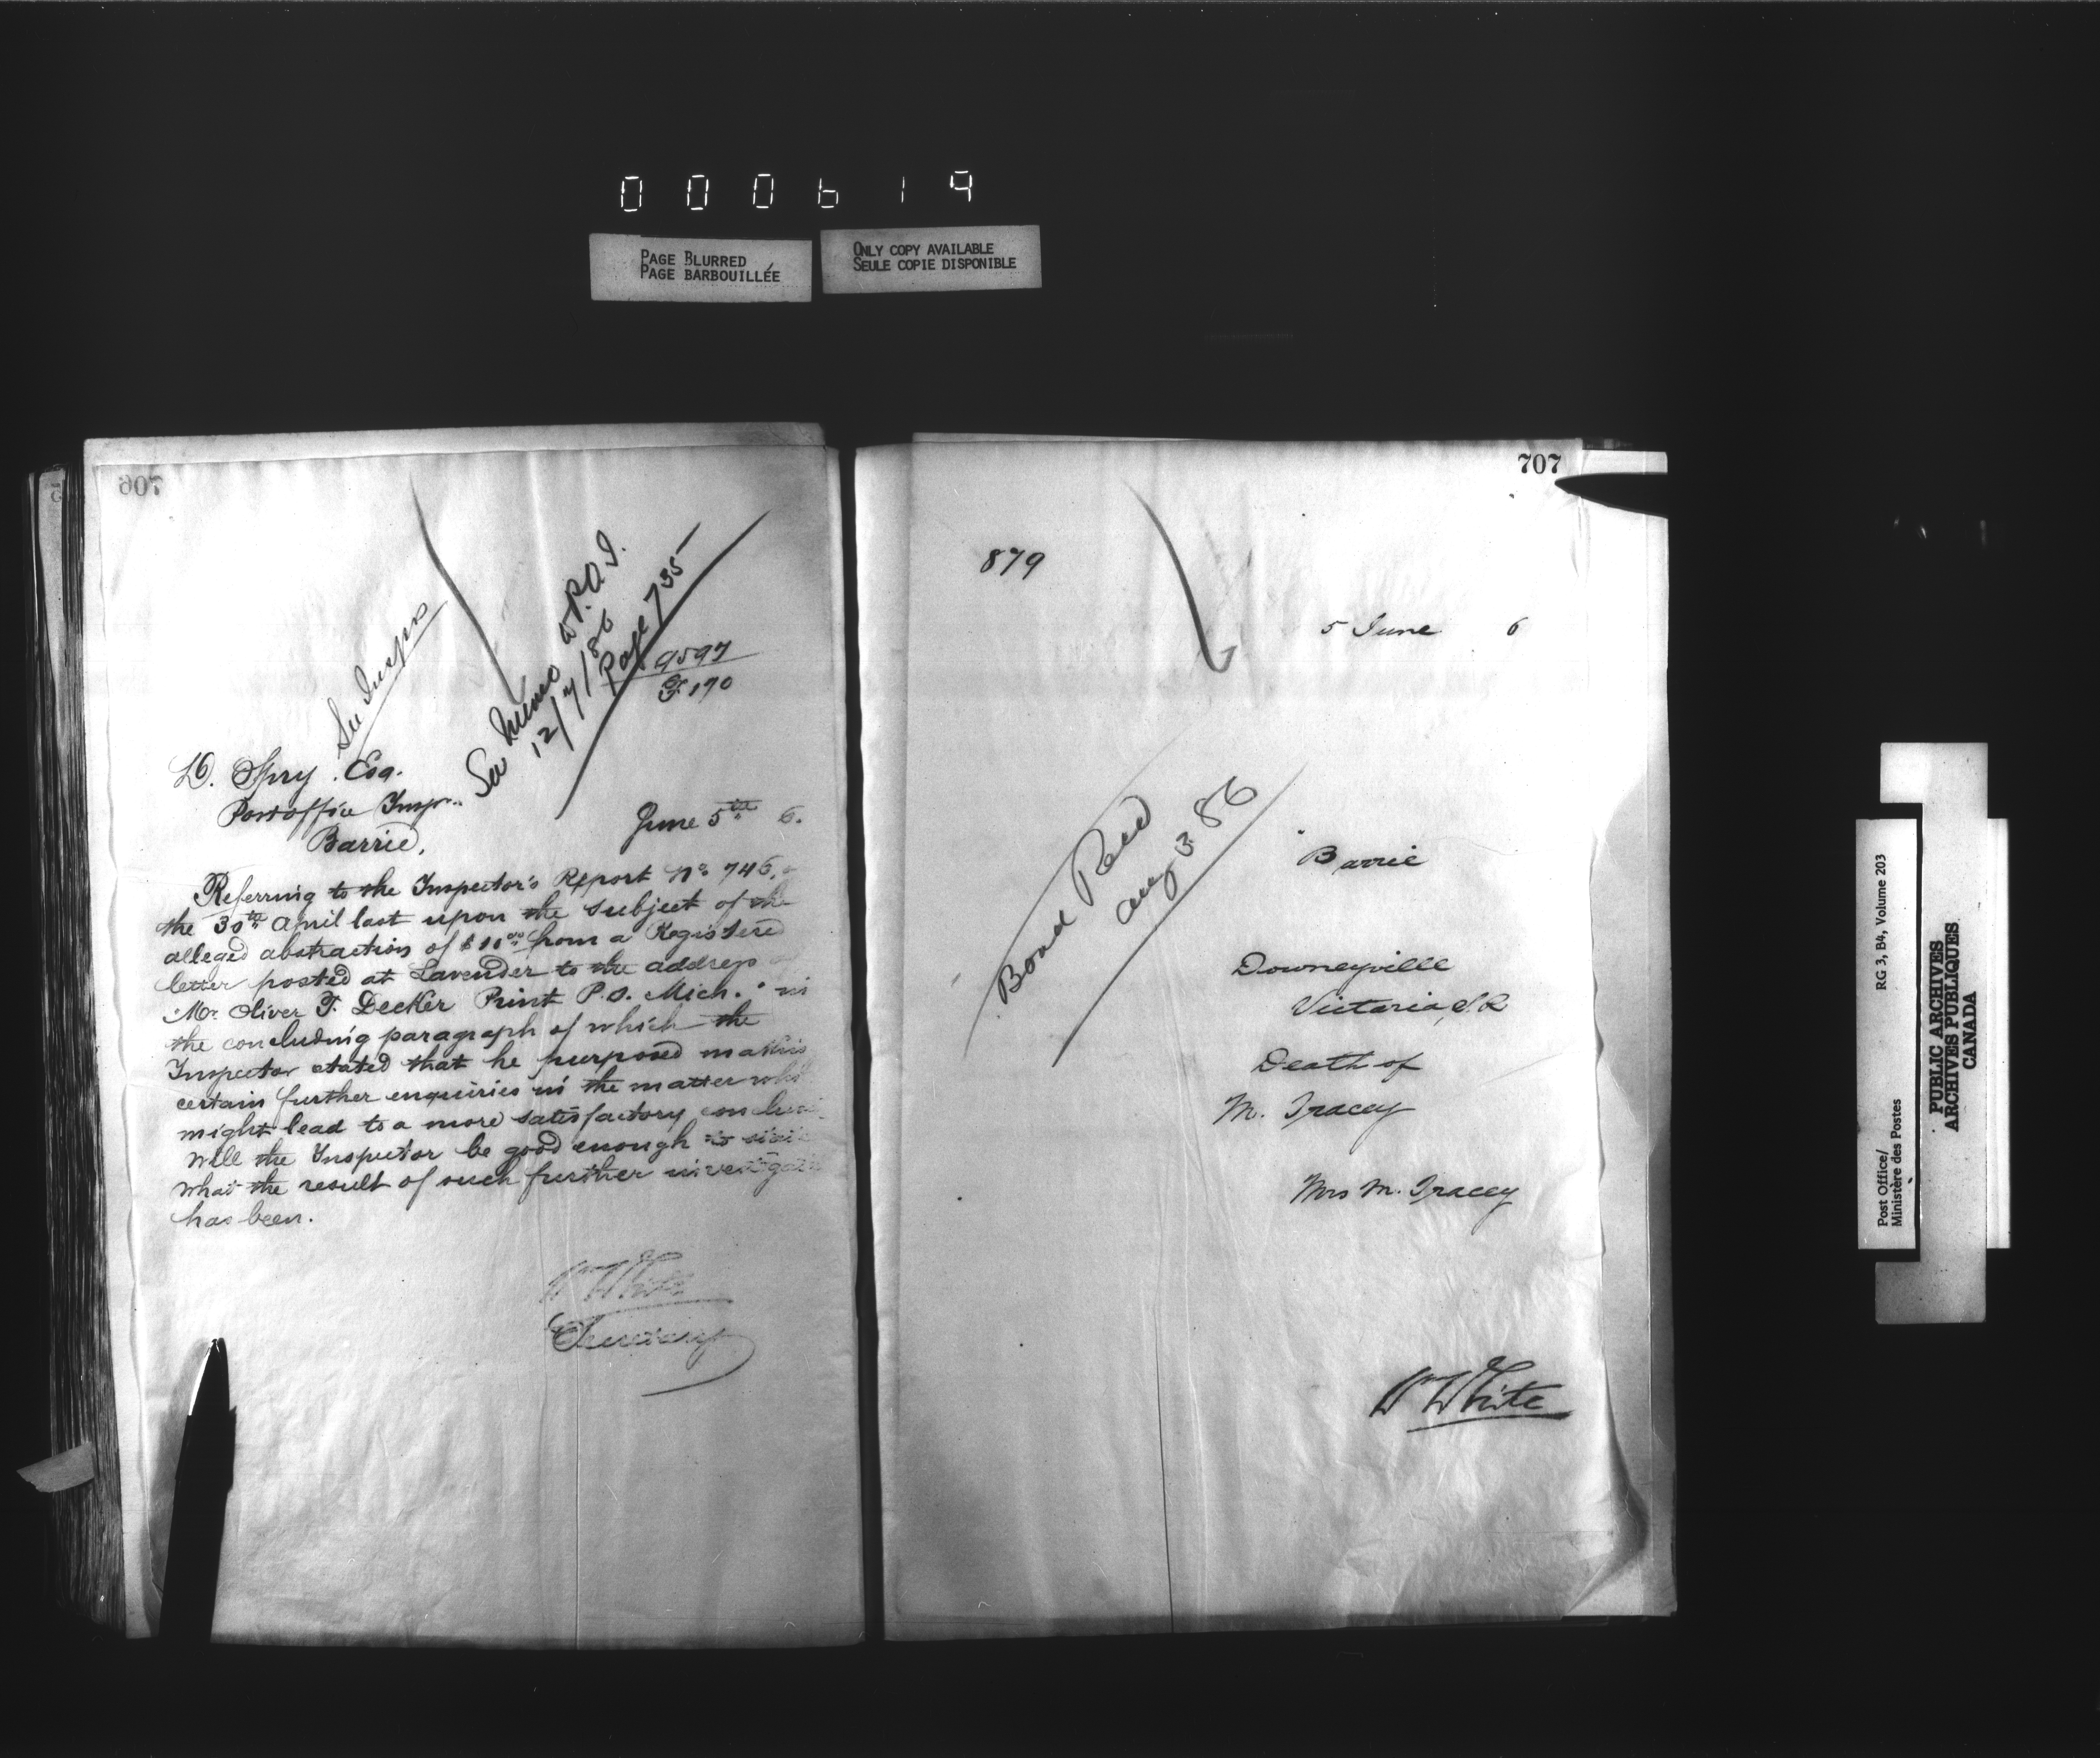 000619
PAGE BLURRED
PAGE BARBOUILLÉE
ONLY COPY AVAILABLE
SEULE COPIE DISPONIBLE
See Memo to P.O.I.
12/7/86
Page 735
9597
F. 190
D. Spry. Esq.
Postoffice Inspr.
Barrie.
June 5th 6.
Referring to the Inspector's Report No 746,
the 30th April last upon the subject of the
alleged abstraction of from a Registered
letter posted at Lavender to the address
Mr. Oliver T. Decker Print P.O. Mich. in
the concluding paragraph of which the
Inspector stated that he purposed making
certain further enquiries in the matter
might lead to a more satisfactory
Will the Inspector be good enough to state
what the result of such further
has been.
Wm White
Secretary
707
879
5 June 6
Bond Recd
Aug 3 86
Barrie
Downeyville
Victoria, S.R
Death of
M. Tracey
Mrs M. Tracey
Wm White
Post Office/
Ministère des Postes
RG 3, B4, Volume 203
PUBLIC ARCHIVES
ARCHIVES PUBLIQUES
CANADA